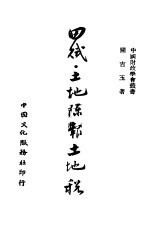 中國財政學會叢書
關吉玉 著
田賦·土地陳報土地稅
中國文化服務社印行